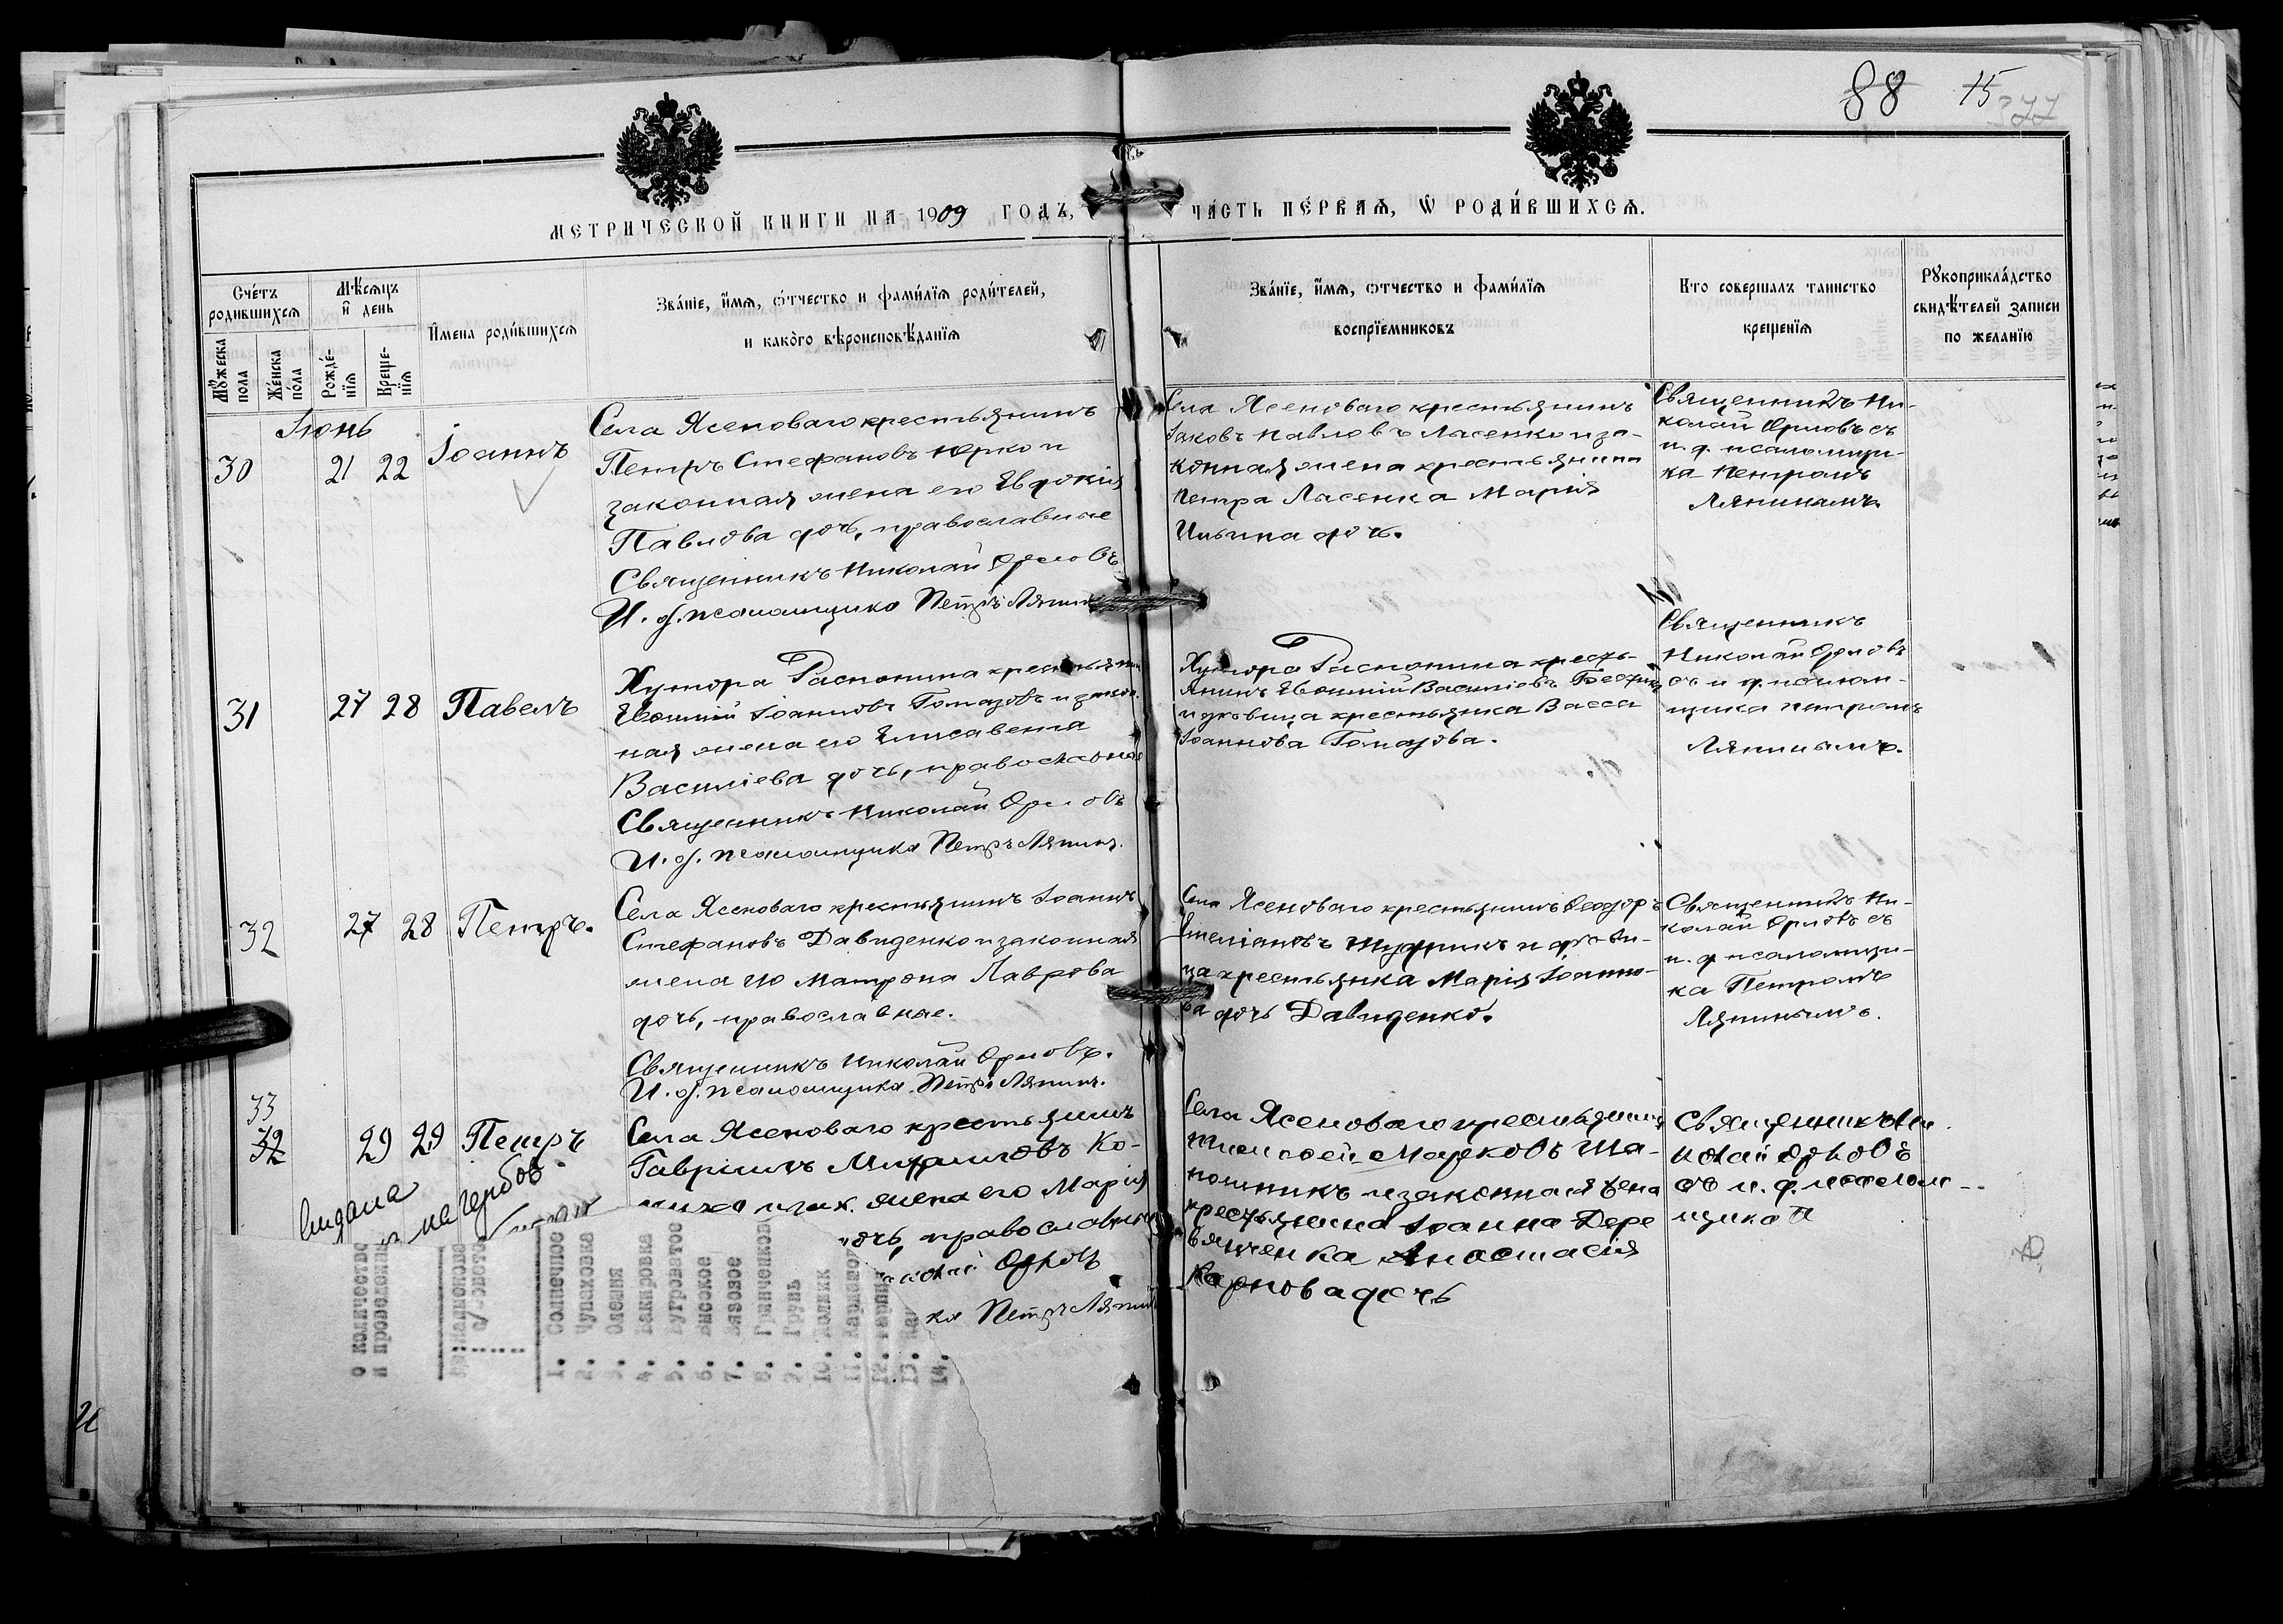 88 15 377
МЕТРИЧЕСКОЙ КНИГИ НА 1909 ГОДЪ, ЧА́СТЬ ПЕ́РВАѦ, Ѡ РОДИ́ВШИХСѦ.
Сче́тъ родившихсѧ
Мѣсѧцъ и день
Имена роди́вшихсѧ
Зва́нїе, и҆мѧ, ѻ҆́тчество и фами́лїѧ роди́телей,
и како́го вѣроисповѣ́данїѧ
Зва́нїе, и҆мѧ, ѻ҆́тчество и фами́лїѧ
воспрїемниковъ
Кто совершалъ таинство
крещенїѧ
Рꙋкоприкла́дство
свидѣ́телей записи
по желанїю
Мꙋ́жеска пола
Же́нска по́ла
Рожде́нїѧ
Креще́нїѧ
Іюнь
30 21 22 Іоаннъ
Села Ясеноваго крестьянинъ
Петръ Стефановъ Юрко и
законная жена его Евдокія
Павлова дочь, православные
Священникъ Николай Орловъ
И. об. псаломщика Петръ Ляпинъ
Села Ясеноваго крестьянинъ
Іаковъ Павловъ Лысенко и за-
конная жена крестьянина
Петра Лысенка Марія
Ильина дочь.
Священникъ Ни-
колай Орловъ съ
и. д. псаломщи-
ка Петромъ
Ляпинымъ.
31 27 28 Павелъ
Хутора Распопина крестьянинъ
Евфимій Іоанновъ Гомазовъ и закон-
ная жена его Елисавета
Василіева дочь, православные
Священникъ Николай Орловъ
И. об. псаломщика Петръ Ляпинъ.
Хутора Распопина кресть-
янинъ Евфимій Василіевъ
и дѣвица крестьянка Васса
Іоаннова Гомазова.
Священникъ
Николай Орловъ
съ и. д. псалом-
щика Петромъ
Ляпинымъ.
32 27 28 Петръ.
Села Ясеноваго крестьянинъ Іоаннъ
Стефановъ Давиденко и законная
жена его Матрона Лаврова
дочь, православные.
Священникъ Николай Орловъ.
И. об. псаломщика Петръ Ляпинъ.
Села Ясеноваго крестьянинъ Ѳеодоръ
Емеліановъ и дѣви-
ца крестьянка Марія Іоанно-
ва дочь Давиденко.
Священникъ Ни-
колай Орловъ съ
и. д. псаломщи-
ка Петромъ
Ляпинымъ.
33
32 29 29 Петръ
Села Ясеноваго крестьянинъ
Гавріилъ Михаиловъ Ко-
жена его Марія
дочь, православные
Орловъ
ка Петръ Ляпинъ
Села Ясеноваго крестьянинъ
Тимофей Марковъ Ша-
пошникъ и законная жена
крестьянина Іоанна Дере
вянченка Анастасія
Карпова дочь
Священникъ Ни
колай Орловъ
съ и. д. псалом-
щика П
видана
о количестве
и проведении
с/-
1. Солнечное
2. Чупаховка
3. Олешня
4. Бакировка
5. Бугроватое
6. Высокое
7. Вязовое
8. Гринченков
9. Грунь
10.
11.
12.
13.
14.